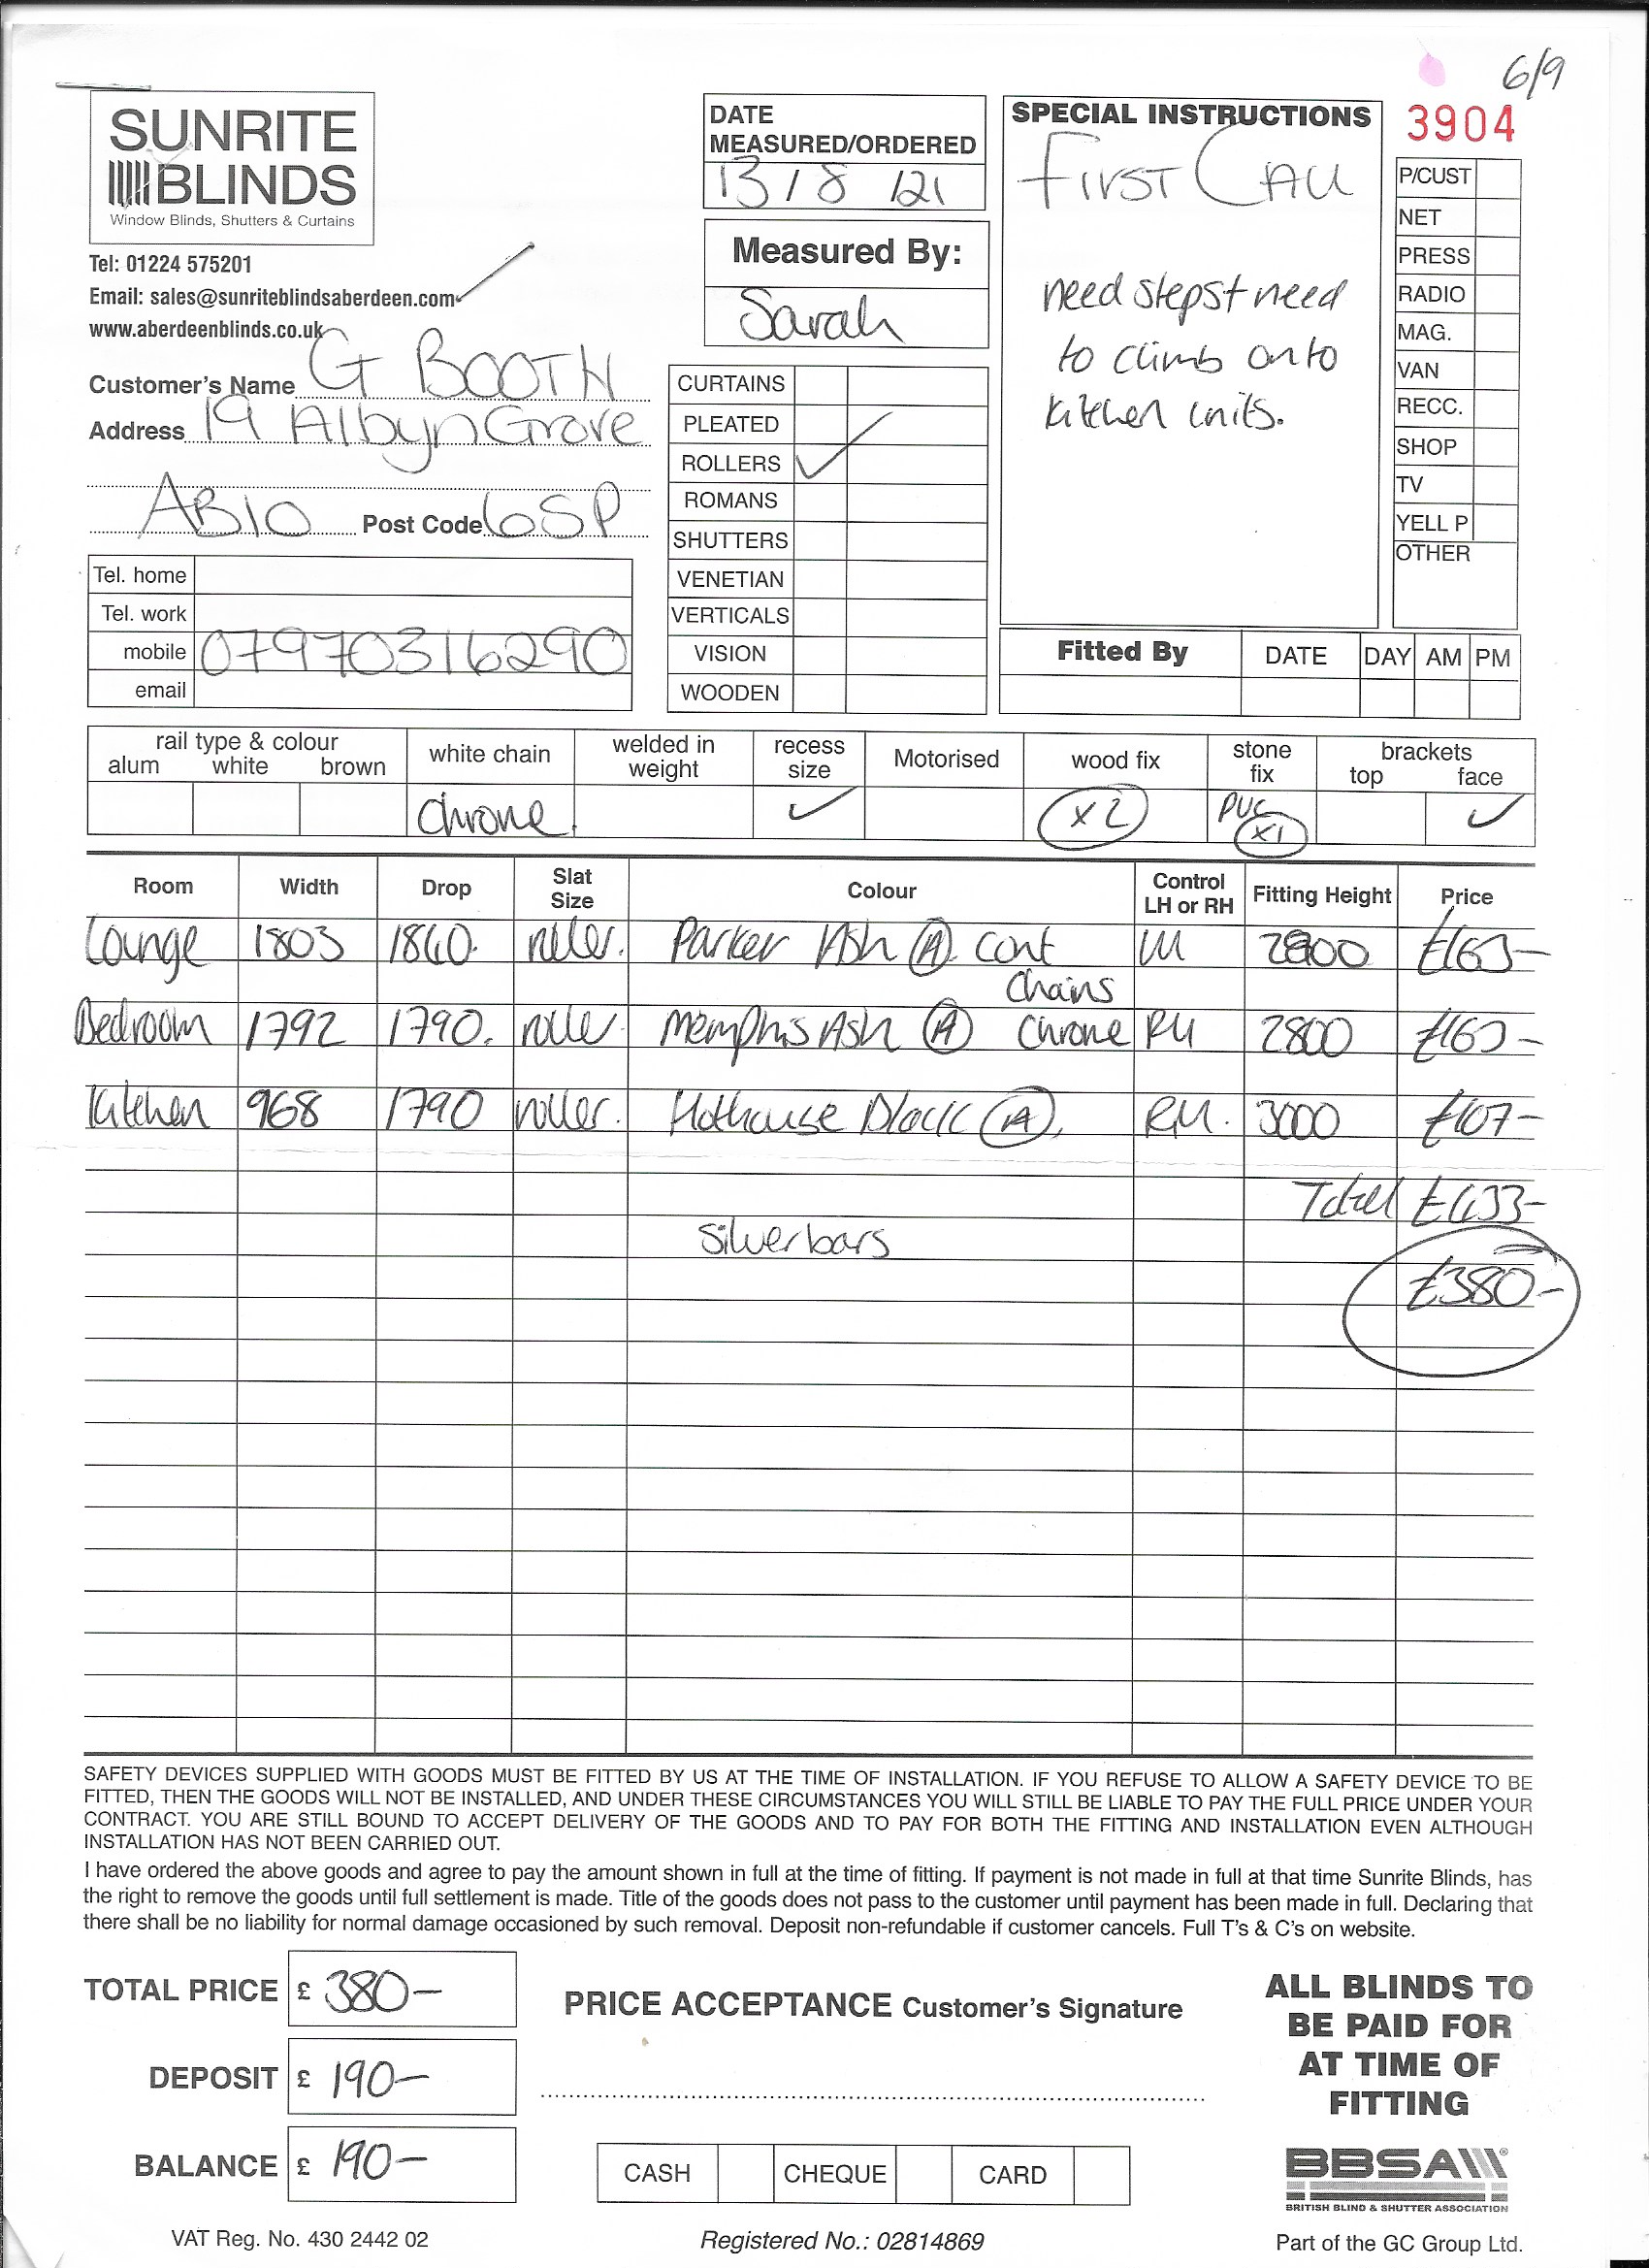 6/9
SUNRITE
BLINDS
Window Blinds, Shutters & Curtains
Tel: 01224 575201
Email: sales@sunriteblindsaberdeen.com
www.aberdeenblinds.co.uk
DATE
MEASURED/ORDERED
13/8/21
Measured By:
Sarah
SPECIAL INSTRUCTIONS
FIRST CALL
need steps + need
to climb onto
kitchen units.
3904
P/CUST
NET
PRESS
RADIO
MAG.
VAN
RECC.
SHOP
TV
YELL P
OTHER
Customer's Name G BOOTH
Address 19 Albyn Grove
AB10 Post Code 6SP
Tel. home
Tel. work
mobile 07970316290
email
CURTAINS
PLEATED
ROLLERS ✓
ROMANS
SHUTTERS
VENETIAN
VERTICALS
VISION
WOODEN
Fitted By DATE DAY AM PM
rail type & colour
alum white brown
white chain
welded in
weight
recess
size
Motorised
wood fix
stone
fix
brackets
top face
Chrome ✓ x2 PVC x1 ✓
Room Width Drop Slat Size Colour Control LH or RH Fitting Height Price
Lounge 1803 1840. roller. Parker Ash (A) cont LH 2800 £163-
Chains
Bedroom 1792 1790. roller Memphis Ash (A) Chrome RH 2800 £163-
Kitchen 968 1790 roller. Hothouse Black (A). RH. 3000 £107-
Total £433-
Silver bars
£380-
SAFETY DEVICES SUPPLIED WITH GOODS MUST BE FITTED BY US AT THE TIME OF INSTALLATION. IF YOU REFUSE TO ALLOW A SAFETY DEVICE TO BE
FITTED, THEN THE GOODS WILL NOT BE INSTALLED, AND UNDER THESE CIRCUMSTANCES YOU WILL STILL BE LIABLE TO PAY THE FULL PRICE UNDER YOUR
CONTRACT. YOU ARE STILL BOUND TO ACCEPT DELIVERY OF THE GOODS AND TO PAY FOR BOTH THE FITTING AND INSTALLATION EVEN ALTHOUGH
INSTALLATION HAS NOT BEEN CARRIED OUT.
I have ordered the above goods and agree to pay the amount shown in full at the time of fitting. If payment is not made in full at that time Sunrite Blinds, has
the right to remove the goods until full settlement is made. Title of the goods does not pass to the customer until payment has been made in full. Declaring that
there shall be no liability for normal damage occasioned by such removal. Deposit non-refundable if customer cancels. Full T's & C's on website.
TOTAL PRICE £ 380-
DEPOSIT £ 190-
BALANCE £ 190-
PRICE ACCEPTANCE Customer's Signature
CASH CHEQUE CARD
ALL BLINDS TO
BE PAID FOR
AT TIME OF
FITTING
BBSA
BRITISH BLIND & SHUTTER ASSOCIATION
VAT Reg. No. 430 2442 02
Registered No.: 02814869
Part of the GC Group Ltd.